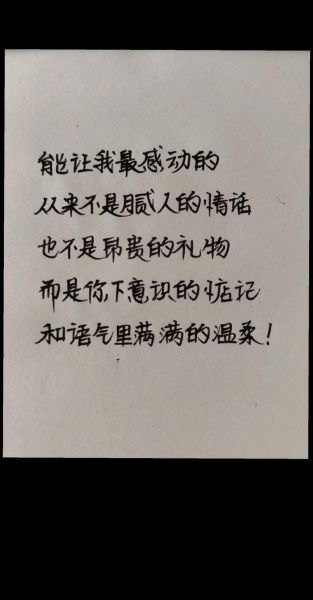 能让我最感动的
从来不是腻人的情话
也不是昂贵的礼物
而是你下意识的惦记
和语气里满满的温柔！